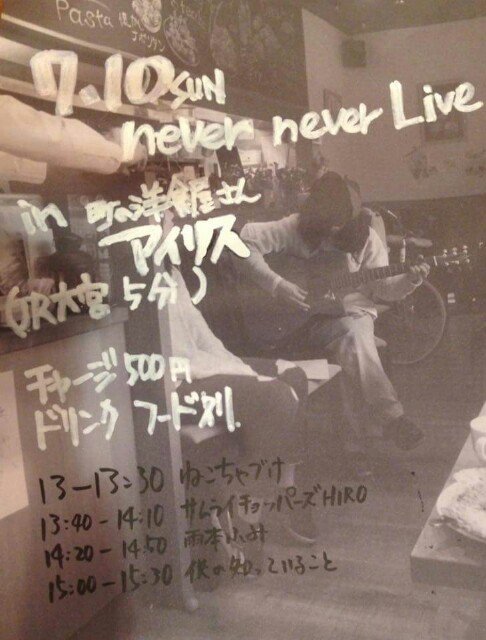 Pasta
7.10 SUN
never never Live
in 町の洋食屋さん
アイリス
(JR大宮 5分)
チャージ 500円
ドリンク フード別.
13-13:30 ねこちゃづけ
13:40-14:10 サムライチョッパーズHIRO
14:20-14:50 雨本小升
15:00-15:30 僕の知っていること